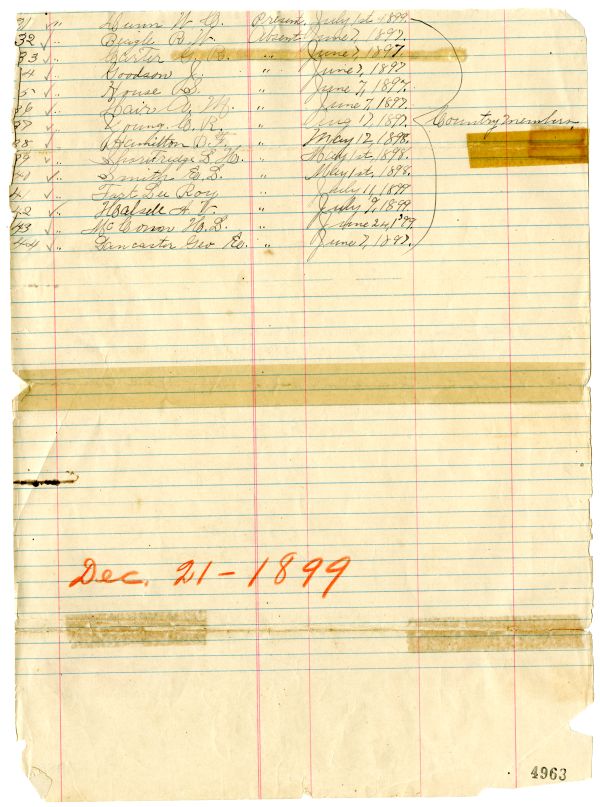 31 ✓ " Dunn W. C. Present July 1st 1899.
32 ✓ " Beagle B. W. Absent June 7, 1897.
33 ✓ " Carter G. B. " June 7, 1897.
34 ✓ " Goodson J. " June 7, 1897
35 ✓ " House " June 7, 1897.
36 ✓ " Hair " June 7, 1897.
37 ✓ " Young C. R. " Aug 17, 1897. Country members
38 ✓ " D. F. " May 12, 1898.
39 ✓ " " May 1st, 1898.
40 ✓ " Smith E. L. " May 1st, 1898.
41 ✓ " Fast Lee Roy July 11, 1899
42 ✓ " Halsell " July 9, 1899
43 ✓ " H. L. " June 24, 1'99.
44 ✓ " Lancaster Geo E. " June 7, 1897.
Dec. 21 - 1899
4963